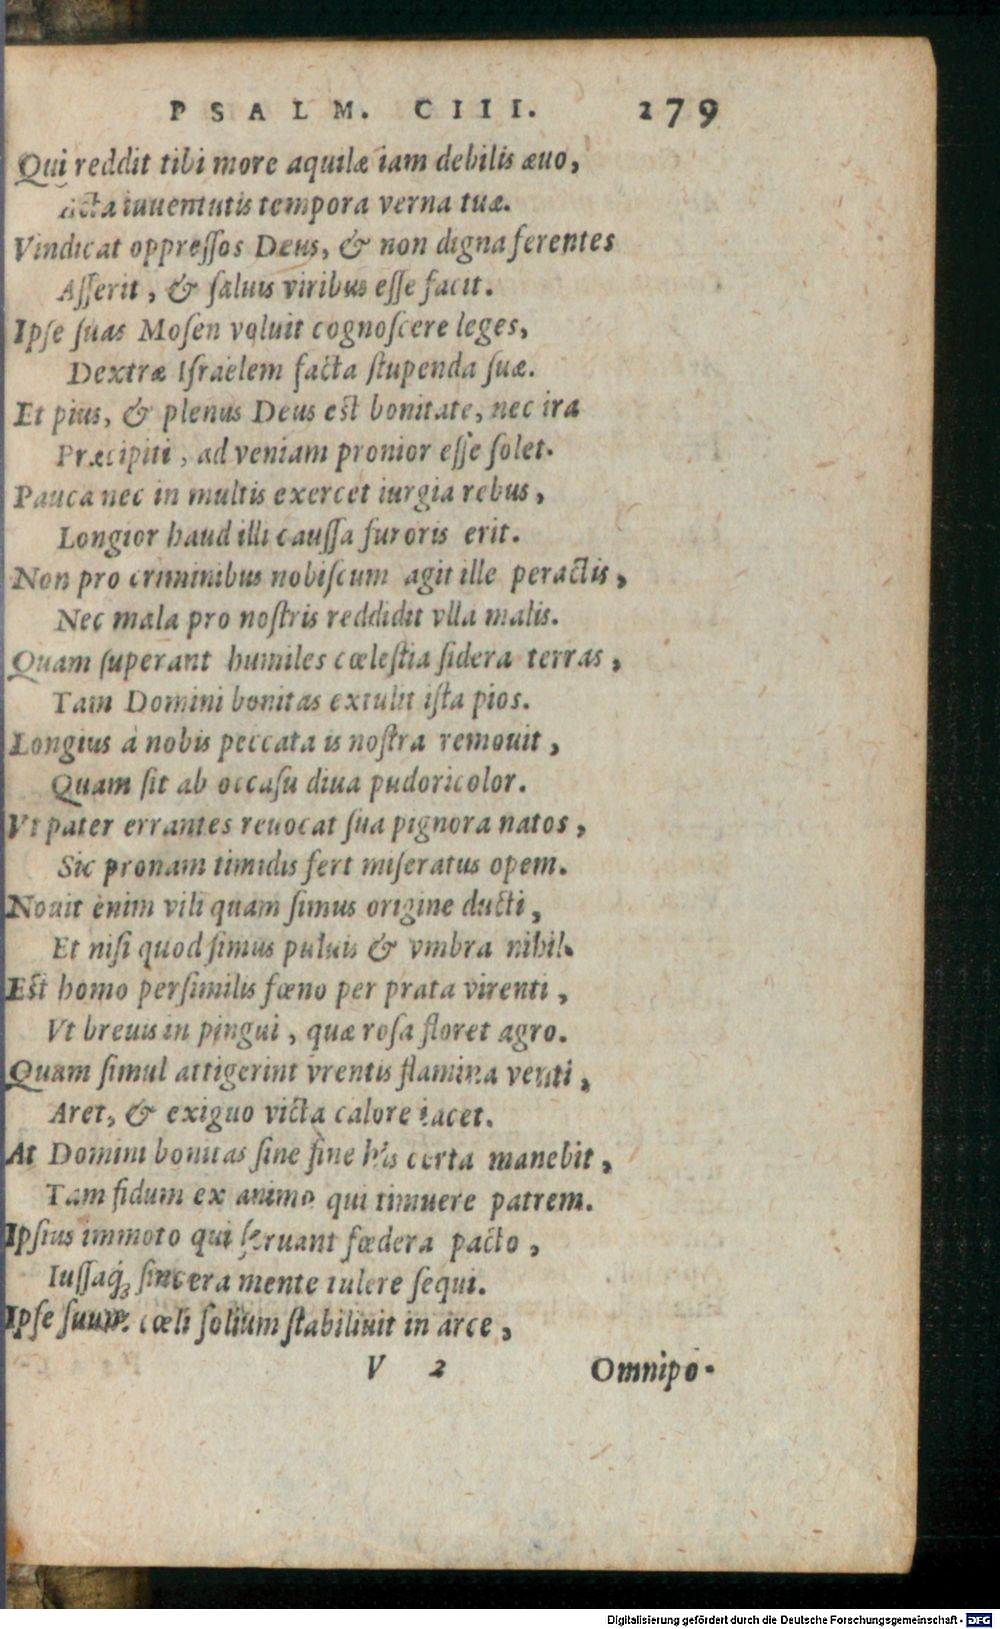 PSALM. CIII. 279
Qui reddit tibi more aquilæ iam debilis æuo,
Acta iuuentutis tempora verna tuæ.
Vindicat oppreſſos Deus, & non digna ferentes
Aſſerit, & ſaluis viribus eſſe facit.
Ipſe ſuas Moſen voluit cognoſcere leges,
Dextræ Iſraelem facta ſtupenda ſuæ.
Et pius, & plenus Deus est bonitate, nec ira
Præcipiti, ad veniam pronior eſſe ſolet.
Pauca nec in multis exercet iurgia rebus,
Longior haud illi cauſſa furoris erit.
Non pro criminibus nobiſcum agit ille peractis,
Nec mala pro noſtris reddidit vlla malis.
Quam ſuperant humiles cœleſtia ſidera terras,
Tam Domini bonitas extulit iſta pios.
Longius à nobis peccata is noſtra remouit,
Quam ſit ab occaſu diua pudoricolor.
Vt pater errantes reuocat ſua pignora natos,
Sic pronam timidis fert miſeratus opem.
Nouit enim vili quam ſimus origine ducti,
Et niſi quod ſimus puluis & vmbra nihil.
Est homo perſimilis fœno per prata virenti,
Vt breuis in pingui, quæ roſa floret agro.
Quam ſimul attigerint vrentis flamina venti,
Aret, & exiguo victa calore iacet.
At Domini bonitas ſine fine his certa manebit,
Tam fidum ex animo qui timuere patrem.
Ipſius immoto qui ſeruant fœdera pacto,
Iuſſaq; ſincera mente tulere ſequi.
Ipſe ſuum cœli ſolium ſtabiliuit in arce,
V 2 Omnipo-
Digitalisierung gefördert durch die Deutsche Forschungsgemeinschaft - DFG